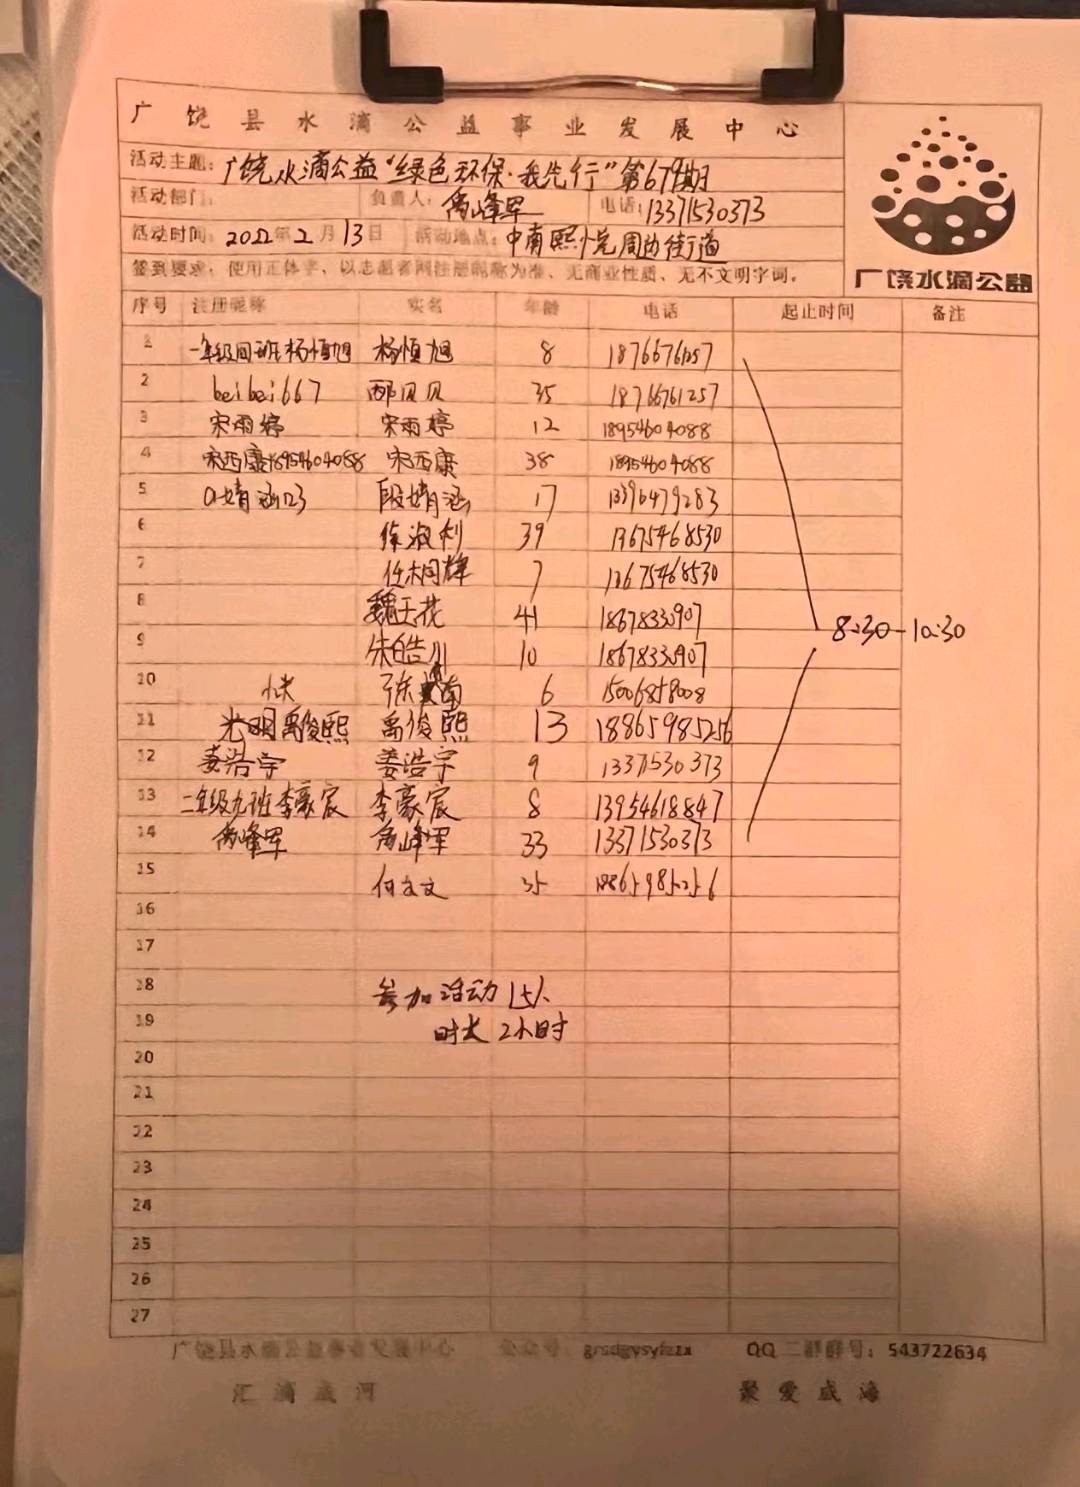 广饶县水滴公益事业发展中心
活动主题：广饶水滴公益“绿色环保·我先行”第679期
活动部门： 负责人：禹峰军 电话：13371530373
活动时间：2022年2月13日 活动地点：中南熙悦周边街道
签到要求：使用正体字，以志愿者网注册昵称为准、无商业性质、无不文明字词。
广饶水滴公益
序号 注册昵称 实名 年龄 电话 起止时间 备注
1 一年级四班杨恒旭 杨恒旭 8 18766761257
2 beibei667 邴贝贝 35 18766761257
3 宋雨婷 宋雨婷 12 18954604088
4 宋西康18954604088 宋西康 38 18954604088
5 a婧涵123 段婧涵 17 13396479283
6 徐淑利 39 13675468530
7 任桐烽 7 13675468530
8 魏玉花 41 18678330907
9 朱皓川 10 18678330907
8:30-10:30
10 张 南 6 15006858008
11 光明禹俊熙 禹俊熙 13 18865985256
12 姜浩宇 姜浩宇 9 13371530373
13 二年级九班李豪宸 李豪宸 8 13954618847
14 禹峰军 禹峰军 33 13371530373
15 何文文 35 18865985256
16
17
18 参加活动 15人
19 时长 2小时
20
21
22
23
24
25
26
27
广饶县水滴公益事业发展中心 公众号： QQ二群群号：543722634
汇滴成河 聚爱成海